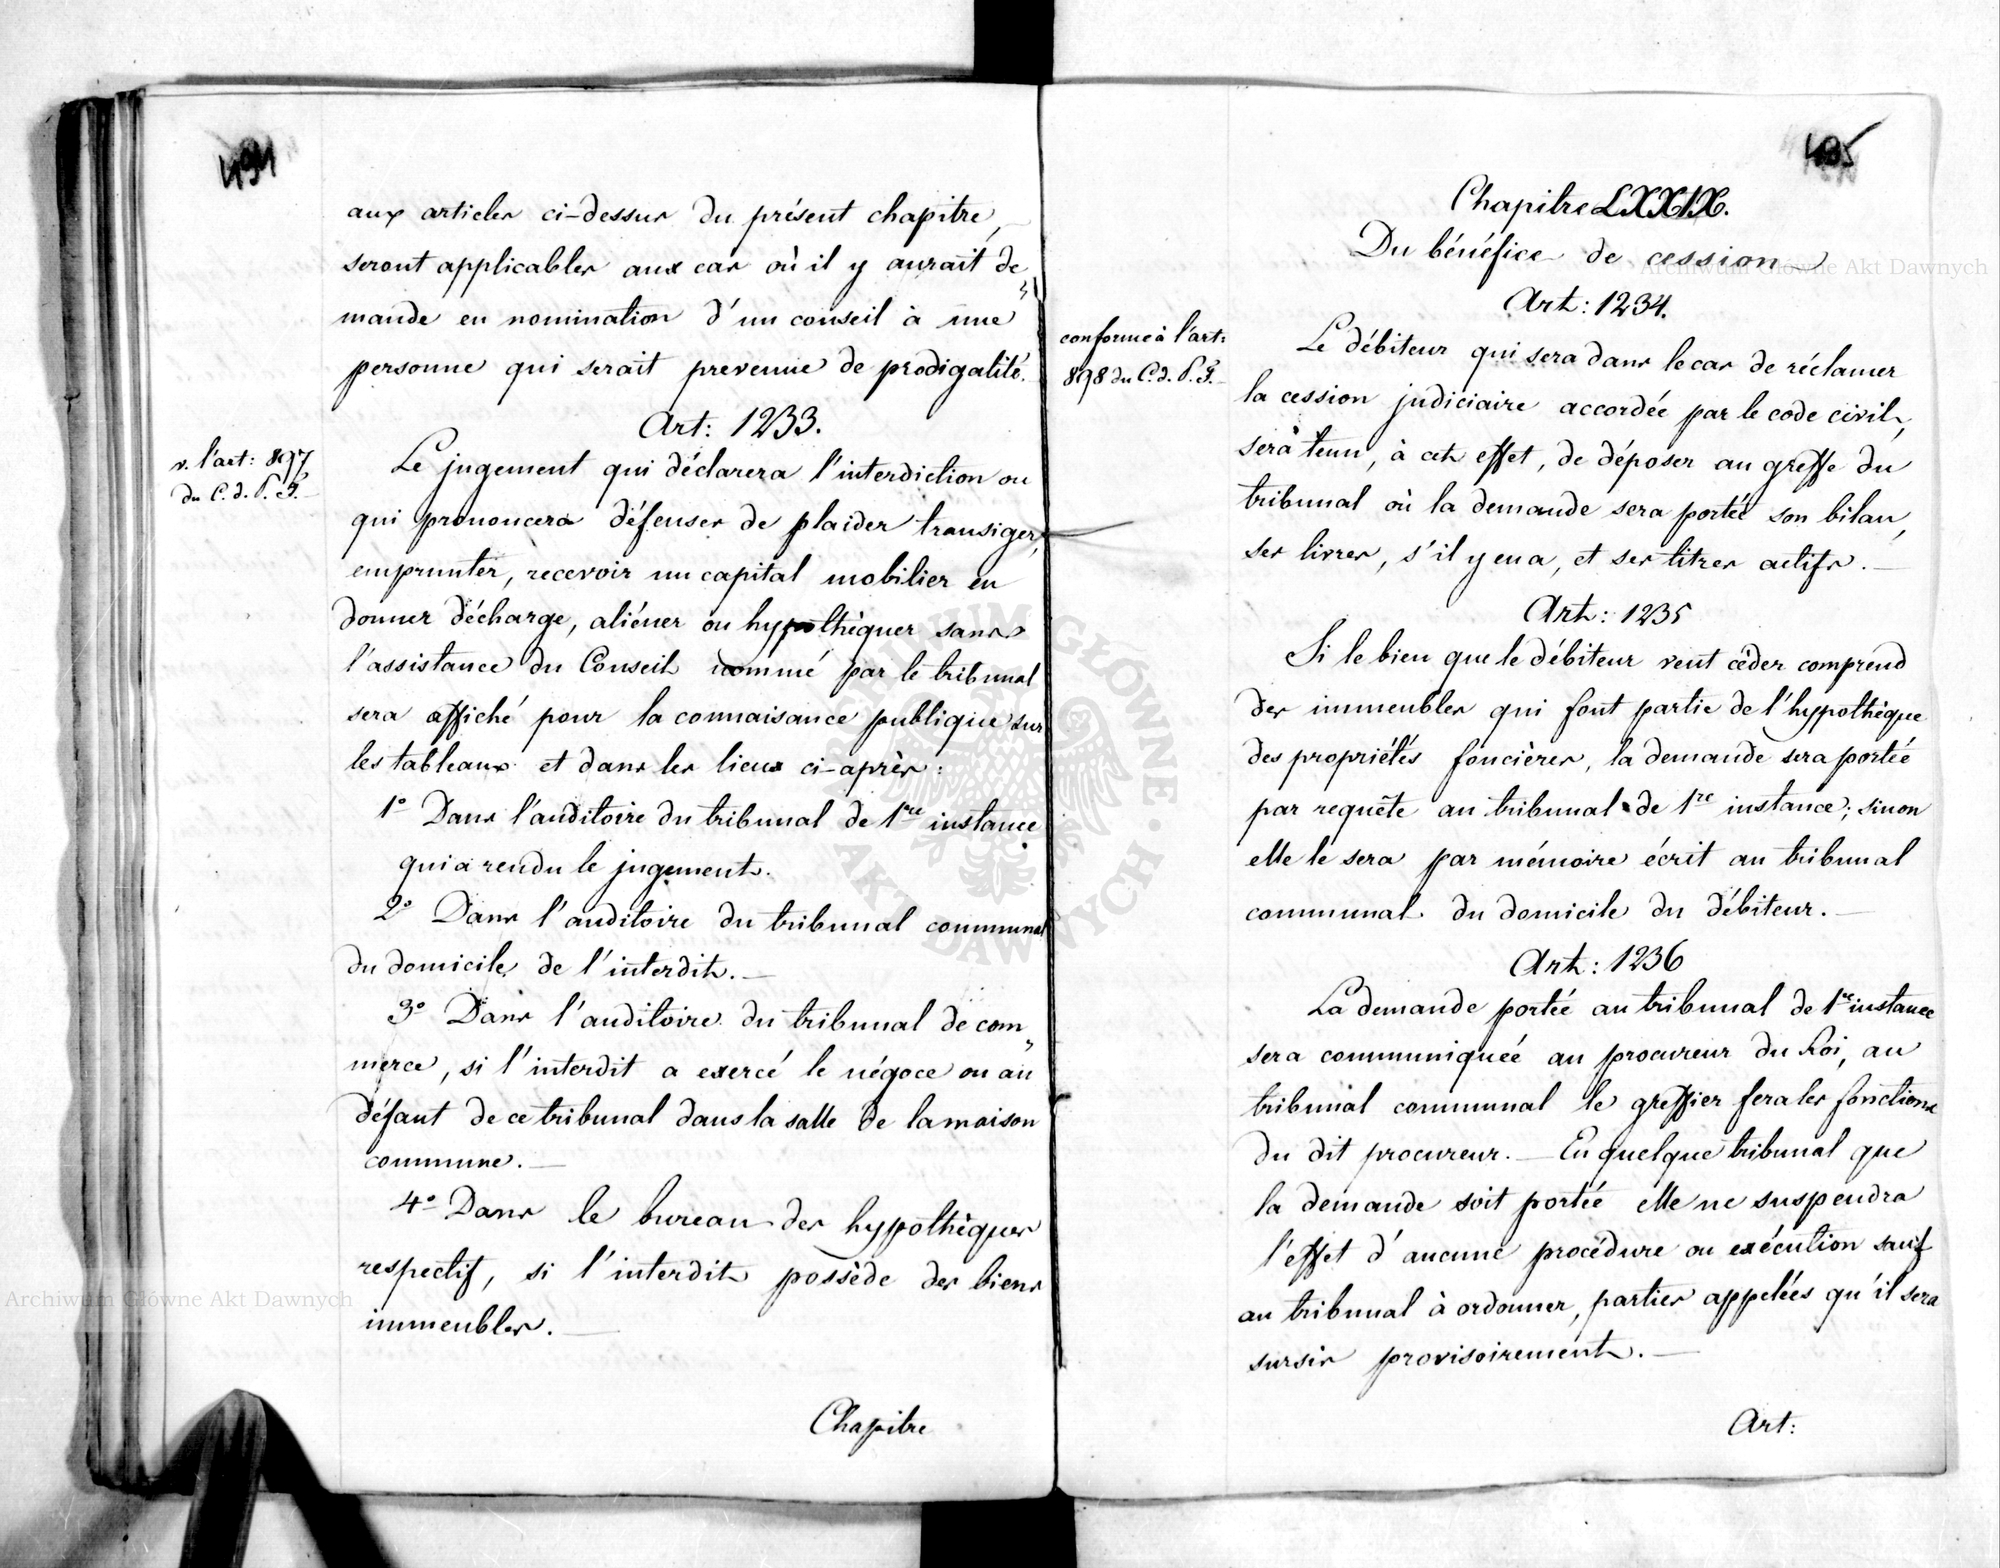 494
aux articles ci-dessus du présent chapitre,
seront applicables aux cas où il y aurait de„
mande en nomination d'un conseil à une
personne qui serait prevenue de prodigalité.
Art: 1233.
v. l'art: 897
du C. d. P. F.
Le jugement qui déclarera l'interdiction ou
qui prononcera défenses de plaider transiger,
emprunter, recevoir un capital mobilier en
donner décharge, aliéner ou hypothèquer sans
l'assistance du Conseil nommé par le tribunal
sera affiché pour la connaisance publique sur
les tableaux et dans les lieux ci-après:
1° Dans l'auditoire du tribunal de 1re instance
qui a rendu le jugement.
2° Dans l'auditoire du tribunal communal
du domicile de l'interdit. —
3° Dans l'auditoire du tribunal de com„
merce, si l'interdit a exercé le négoce ou au
défaut de ce tribunal dans la salle de la maison
commune. —
4° Dans le bureau des hypothèques
respectif, si l'interdit possède des biens
immeubles. —
Chapitre
495
Chapitre LXXIX.
Du bénéfice de cession
Art: 1234.
conforme à l'art:
898 du C. d. P. F.
Le débiteur qui sera dans le cas de réclamer
la cession judiciaire accordée par le code civil,
sera tenu, à cet effet, de déposer au greffe du
tribunal où la demande sera portée son bilan,
ses livres, s'il y en a, et ses titres actifs. —
Art: 1235
Si le bien que le débiteur veut céder comprend
des immeubles qui font partie de l'hypothèque
des propriétés foncières, la demande sera portée
par requête au tribunal de 1re instance; sinon
elle le sera par mémoire écrit au tribunal
communal du domicile du débiteur. —
Art: 1236
La demande portée au tribunal de 1re instance
sera communiquée au procureur du Roi, au
tribunal communal le greffier fera les fonctions
du dit procureur. — En quelque tribunal que
la demande soit portée elle ne suspendra
l'effet d'aucune procédure ou exécution sauf
au tribunal à ordonner, parties appelées qu'il sera
sursis provisoirement. —
Art:
Archiwum Główne Akt Dawnych
Archiwum Główne Akt Dawnych
ARCHIWUM GŁÓWNE · AKT DAWNYCH ·